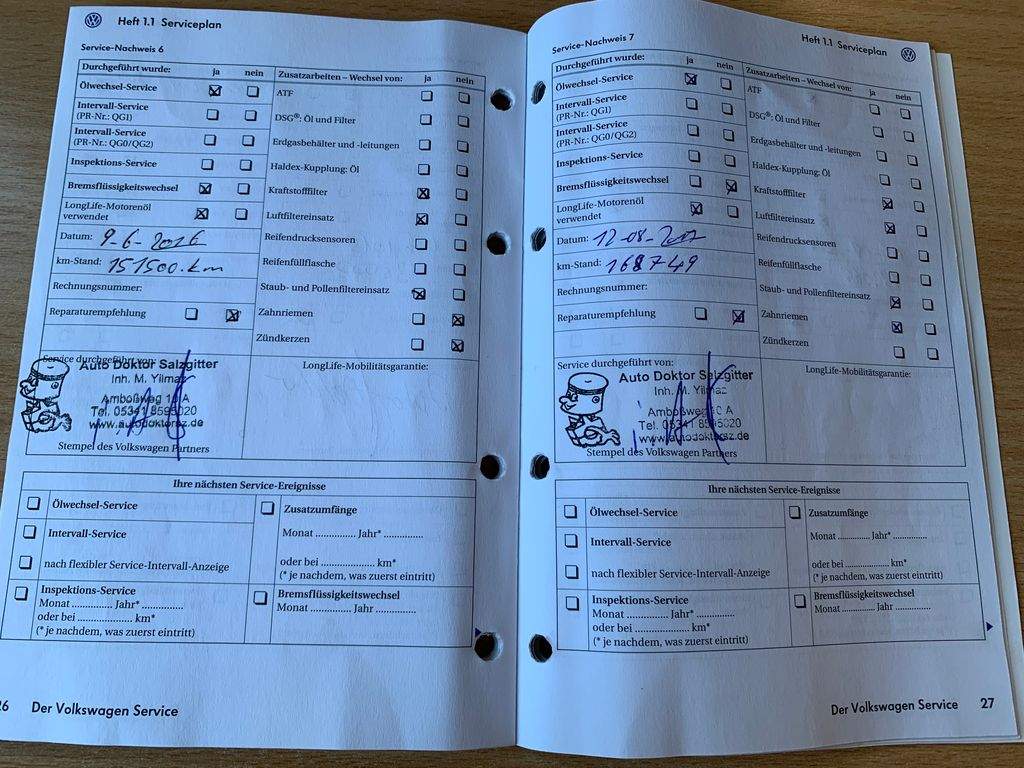 Heft 1.1 Serviceplan
Service-Nachweis 6
Durchgeführt wurde: ja nein
Ölwechsel-Service
Intervall-Service
(PR-Nr.: QG1)
Intervall-Service
(PR-Nr.: QG0/QG2)
Inspektions-Service
Bremsflüssigkeitswechsel
LongLife-Motorenöl
verwendet
Datum: 9-6-2016
km-Stand: 151500.km
Rechnungsnummer:
Reparaturempfehlung
Zusatzarbeiten – Wechsel von: ja nein
ATF
DSG®: Öl und Filter
Erdgasbehälter und -leitungen
Haldex-Kupplung: Öl
Kraftstofffilter
Luftfiltereinsatz
Reifendrucksensoren
Reifenfüllflasche
Staub- und Pollenfiltereinsatz
Zahnriemen
Zündkerzen
Service durchgeführt von:
Auto Doktor Salzgitter
Inh. M. Yilmaz
Amboßweg 10 A
Tel. 05341 8595020
www.autodoktorsz.de
Stempel des Volkswagen Partners
LongLife-Mobilitätsgarantie:
Ihre nächsten Service-Ereignisse
Ölwechsel-Service
Intervall-Service
nach flexibler Service-Intervall-Anzeige
Inspektions-Service
Monat .............. Jahr* ..............
oder bei .................... km*
(* je nachdem, was zuerst eintritt)
Zusatzumfänge
Monat .............. Jahr* ..............
oder bei .................... km*
(* je nachdem, was zuerst eintritt)
Bremsflüssigkeitswechsel
Monat .............. Jahr ..............
26 Der Volkswagen Service
Heft 1.1 Serviceplan
Service-Nachweis 7
Durchgeführt wurde: ja nein
Ölwechsel-Service
Intervall-Service
(PR-Nr.: QG1)
Intervall-Service
(PR-Nr.: QG0/QG2)
Inspektions-Service
Bremsflüssigkeitswechsel
LongLife-Motorenöl
verwendet
Datum: 12-08-2017
km-Stand: 168749
Rechnungsnummer:
Reparaturempfehlung
Zusatzarbeiten – Wechsel von: ja nein
ATF
DSG®: Öl und Filter
Erdgasbehälter und -leitungen
Haldex-Kupplung: Öl
Kraftstofffilter
Luftfiltereinsatz
Reifendrucksensoren
Reifenfüllflasche
Staub- und Pollenfiltereinsatz
Zahnriemen
Zündkerzen
Service durchgeführt von:
Auto Doktor Salzgitter
Inh. M. Yilmaz
Amboßweg 10 A
Tel. 05341 8595020
www.autodoktorsz.de
Stempel des Volkswagen Partners
LongLife-Mobilitätsgarantie:
Ihre nächsten Service-Ereignisse
Ölwechsel-Service
Intervall-Service
nach flexibler Service-Intervall-Anzeige
Inspektions-Service
Monat .............. Jahr* ..............
oder bei .................... km*
(* je nachdem, was zuerst eintritt)
Zusatzumfänge
Monat ............ Jahr* ..............
oder bei .................... km*
(* je nachdem, was zuerst eintritt)
Bremsflüssigkeitswechsel
Monat .............. Jahr ..............
Der Volkswagen Service 27